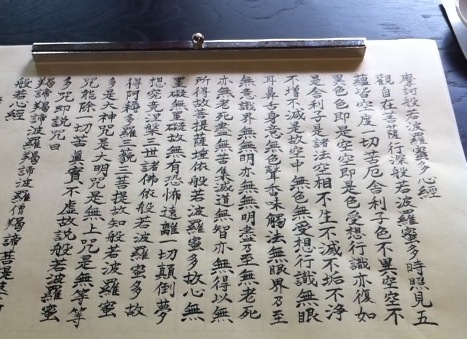 摩訶般若波羅蜜多心經
觀自在菩薩行深般若波羅蜜多時照見五
蘊皆空度一切苦厄舍利子色不異空空不
異色色即是空空即是色受想行識亦復如
是舍利子是諸法空相不生不滅不垢不淨
不增不減是故空中無色無受想行識無眼
耳鼻舌身意無色聲香味觸法無眼界乃至
無意識界無無明亦無無明盡乃至無老死
亦無老死盡無苦集滅道無智亦無得以無
所得故菩提薩埵依般若波羅蜜多故心無
罣礙無罣礙故無有恐怖遠離一切顛倒夢
想究竟涅槃三世諸佛依般若波羅蜜多故
得阿耨多羅三藐三菩提故知般若波羅蜜
多是大神咒是大明咒是無上咒是無等等
咒能除一切苦真實不虛故說般若波羅蜜
多咒即說咒曰
羯諦羯諦波羅羯諦波羅僧羯諦菩提
般若心經